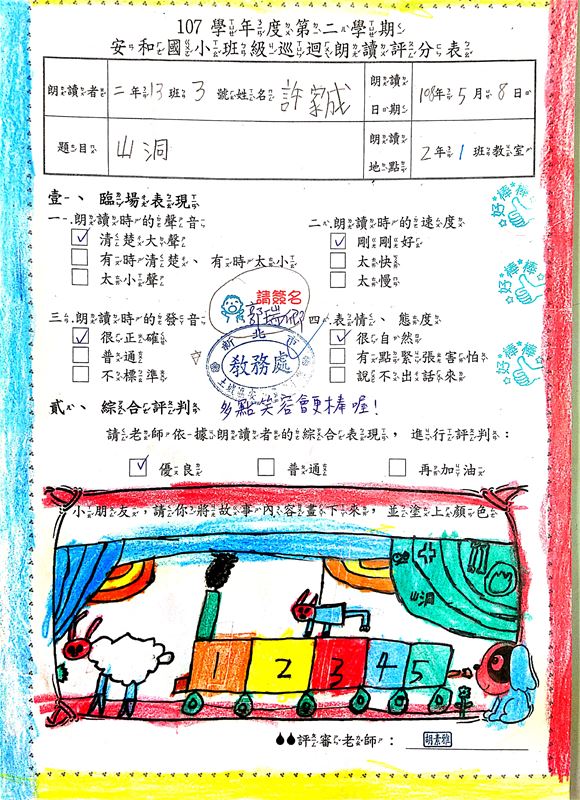 107 學年度第二學期
安和國小班級巡迴朗讀評分表
朗讀者 二年13班3號姓名 許家成 朗讀日期 108年5月8日
題目 山洞 朗讀地點 2年1班教室
壹、臨場表現
一.朗讀時的聲音
清楚大聲
有時清楚、有時太小
太小聲
二.朗讀時的速度
剛剛好
太快
太慢
好棒棒
好棒棒
好棒棒
請簽名
三.朗讀時的發音
很正確
普通
不標準
四.表情、態度
很自然
有點緊張害怕
說不出話來
新北市
教務處
貳、綜合評判 多點笑容會更棒喔!
請老師依據朗讀者的綜合表現,進行評判:
優良 普通 再加油
小朋友,請你將故事內容畫下來,並塗上顏色
山洞
1 2 3 4 5
評審老師: 胡素雅